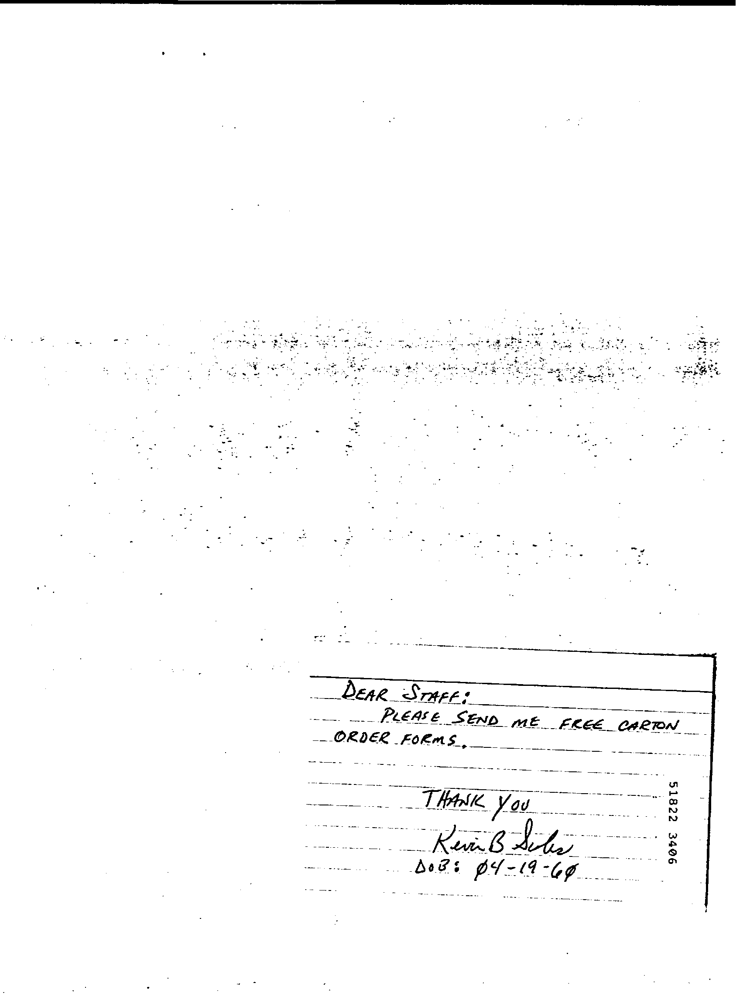 DEAR STAFF:
PLEASE SEND ME FREE CARTON
ORDER FORMS.
THANK YOU
Kevin B
DOB: 04-19-60
51822 3406